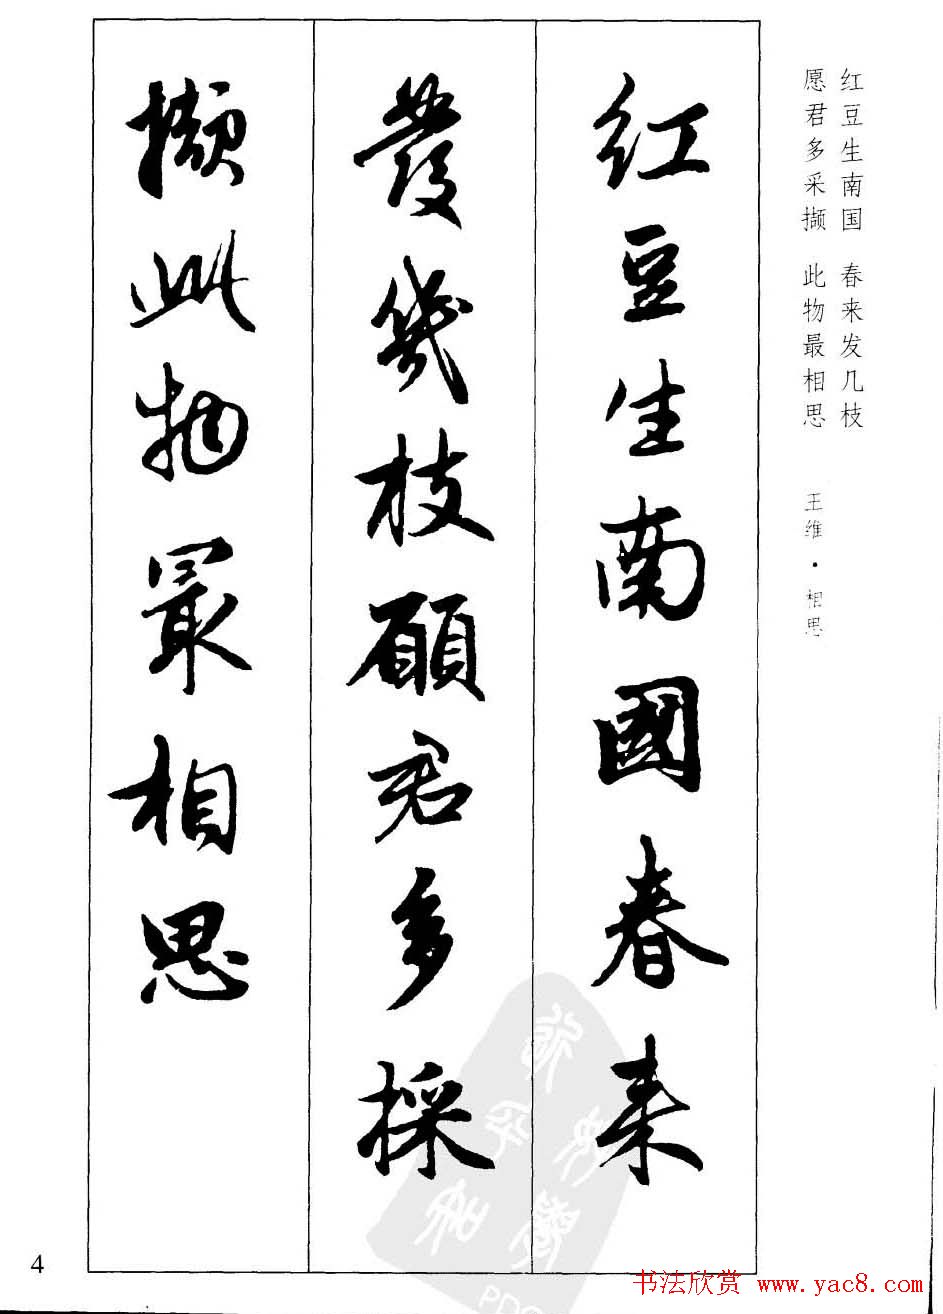 红豆生南国 春来发几枝
愿君多采撷 此物最相思
王维·相思
红豆生南國春来
發幾枝願君多採
擷此物最相思
4
书法欣赏 www.yac8.com